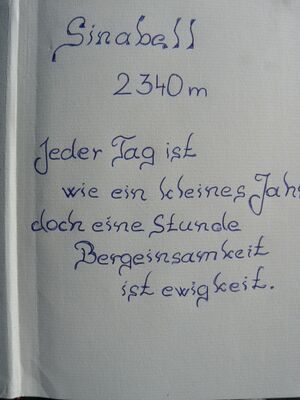 Sinabell
2340m
Jeder Tag ist
wie ein kleines Jahr
doch eine Stunde
Bergeinsamkeit
ist ewigkeit.